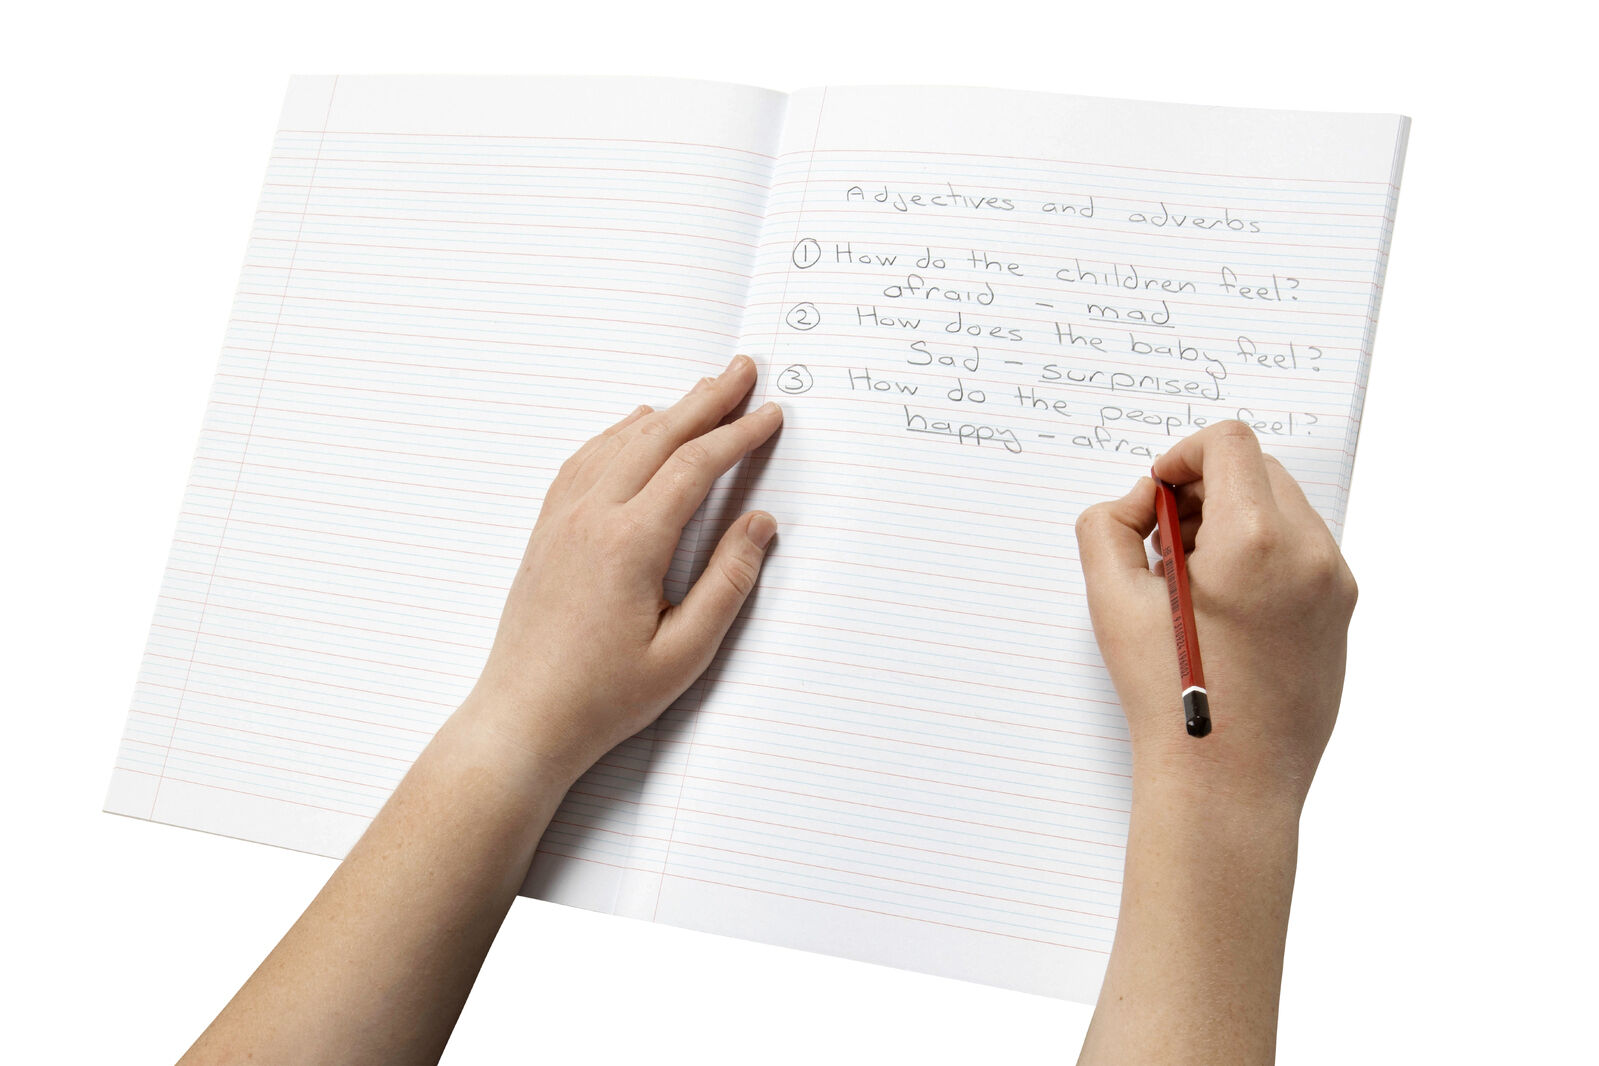 Adjectives and adverbs
① How do the children feel?
afraid - mad
② How does the baby feel?
Sad - surprised
③ How do the people feel?
happy - afra